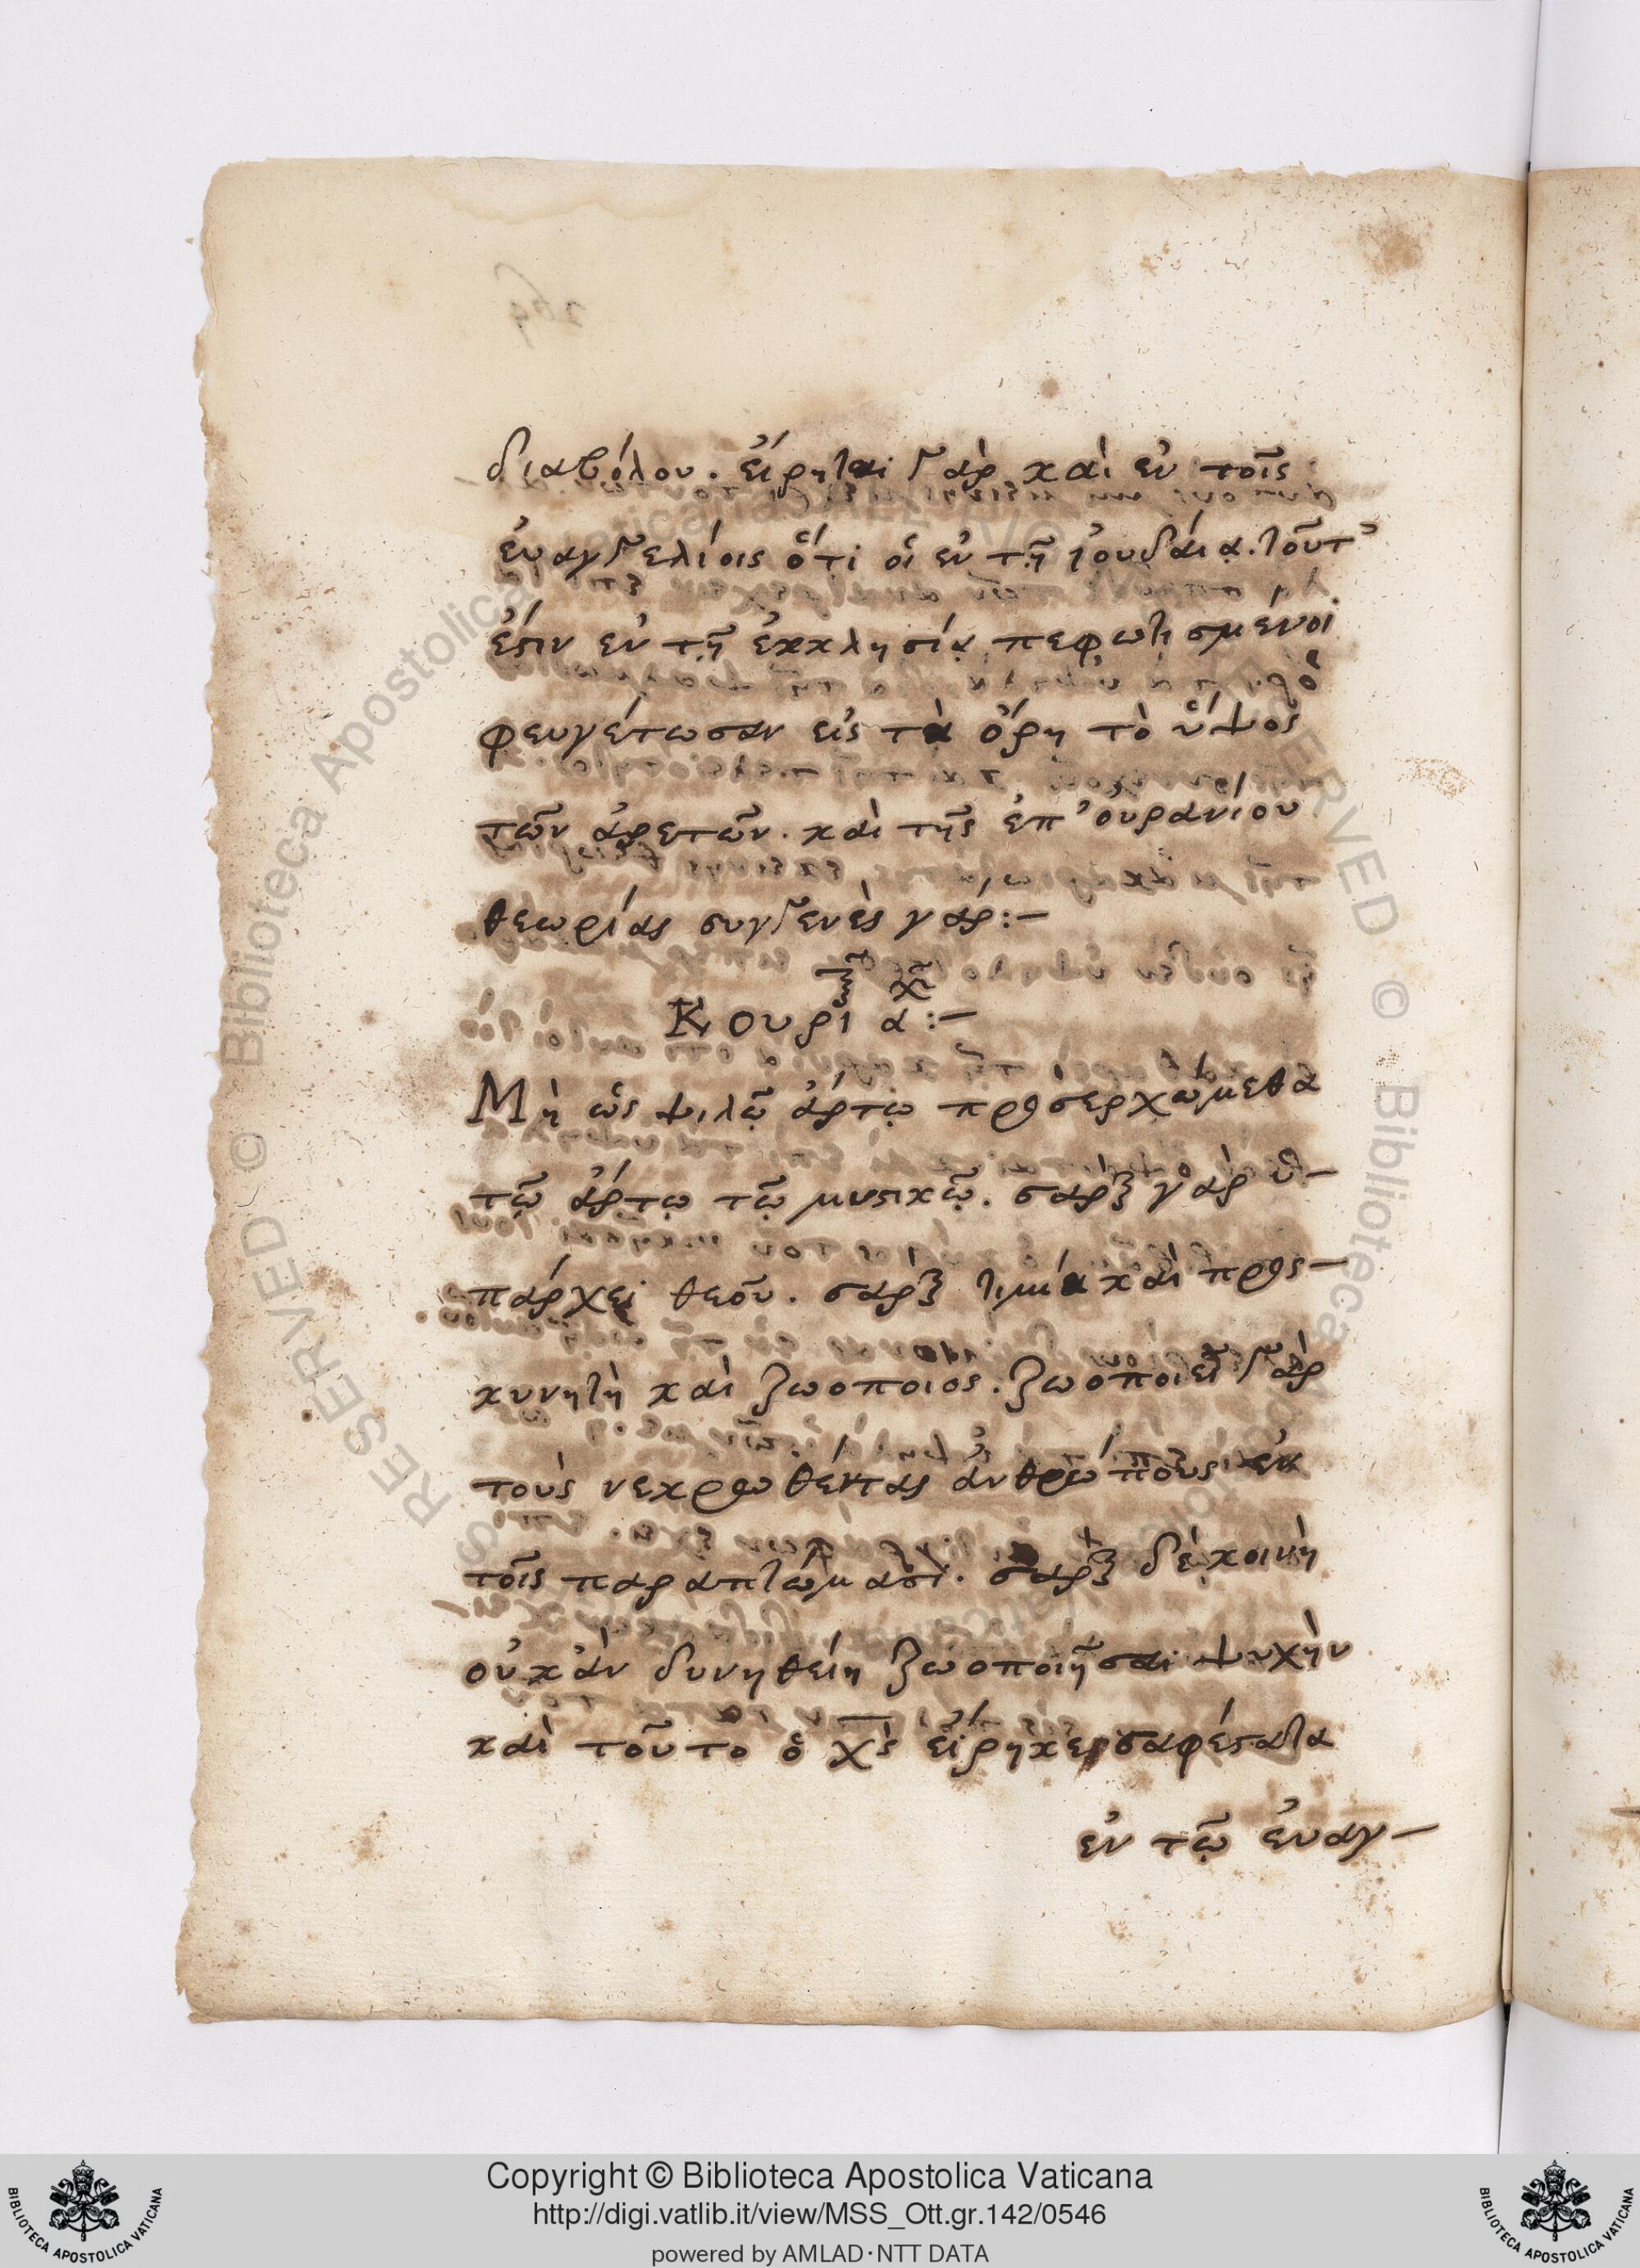 διαβόλου. εἴρηται γὰρ καὶ ἐν τοῖς
ἐυαγγελίοις ὅτι οἱ ἐν τῇ ἰουδάια. τοῦτ᾽
ἐστιν ἐν τῇ ἐκκλησίᾳ πεφωτισμένοι
φευγέτωσαν εἰς τὰ ὄρη τὸ ὕψος
τῶν ἀρετῶν. καὶ τῆς ἐπ᾽ οὐρανίου
θεωρίας συγγενὲς γάρ:—
Μὴ ὡς ψιλῷ ἄρτῳ προσερχώμεθα
τῷ ἄρτῳ τῷ μυστικῷ. σὰρξ γὰρ ὑ—
πάρχει θεοῦ. σὰρξ τιμία καὶ προς—
κυνητὴ καὶ ζωοποιος. ζωοποιεῖ γὰρ
τοὺς νεκρωθέντας ἀνθρώπους ἐν
τοῖς παραπτώμασι. σὰρξ δὲ κοινὴ
οὐκ ἂν δυνηθείη ζωοποιῆσαι ψυχὴν
καὶ τοῦτο ὁ χς εἴρηκε σαφέστατα
ἐν τῷ ἐυαγ—
Copyright © Biblioteca Apostolica Vaticana
http://digi.vatlib.it/view/MSS_Ott.gr.142/0546
powered by AMLAD·NTT DATA
BIBLIOTECA APOSTOLICA VATICANA
BIBLIOTECA APOSTOLICA VATICANA